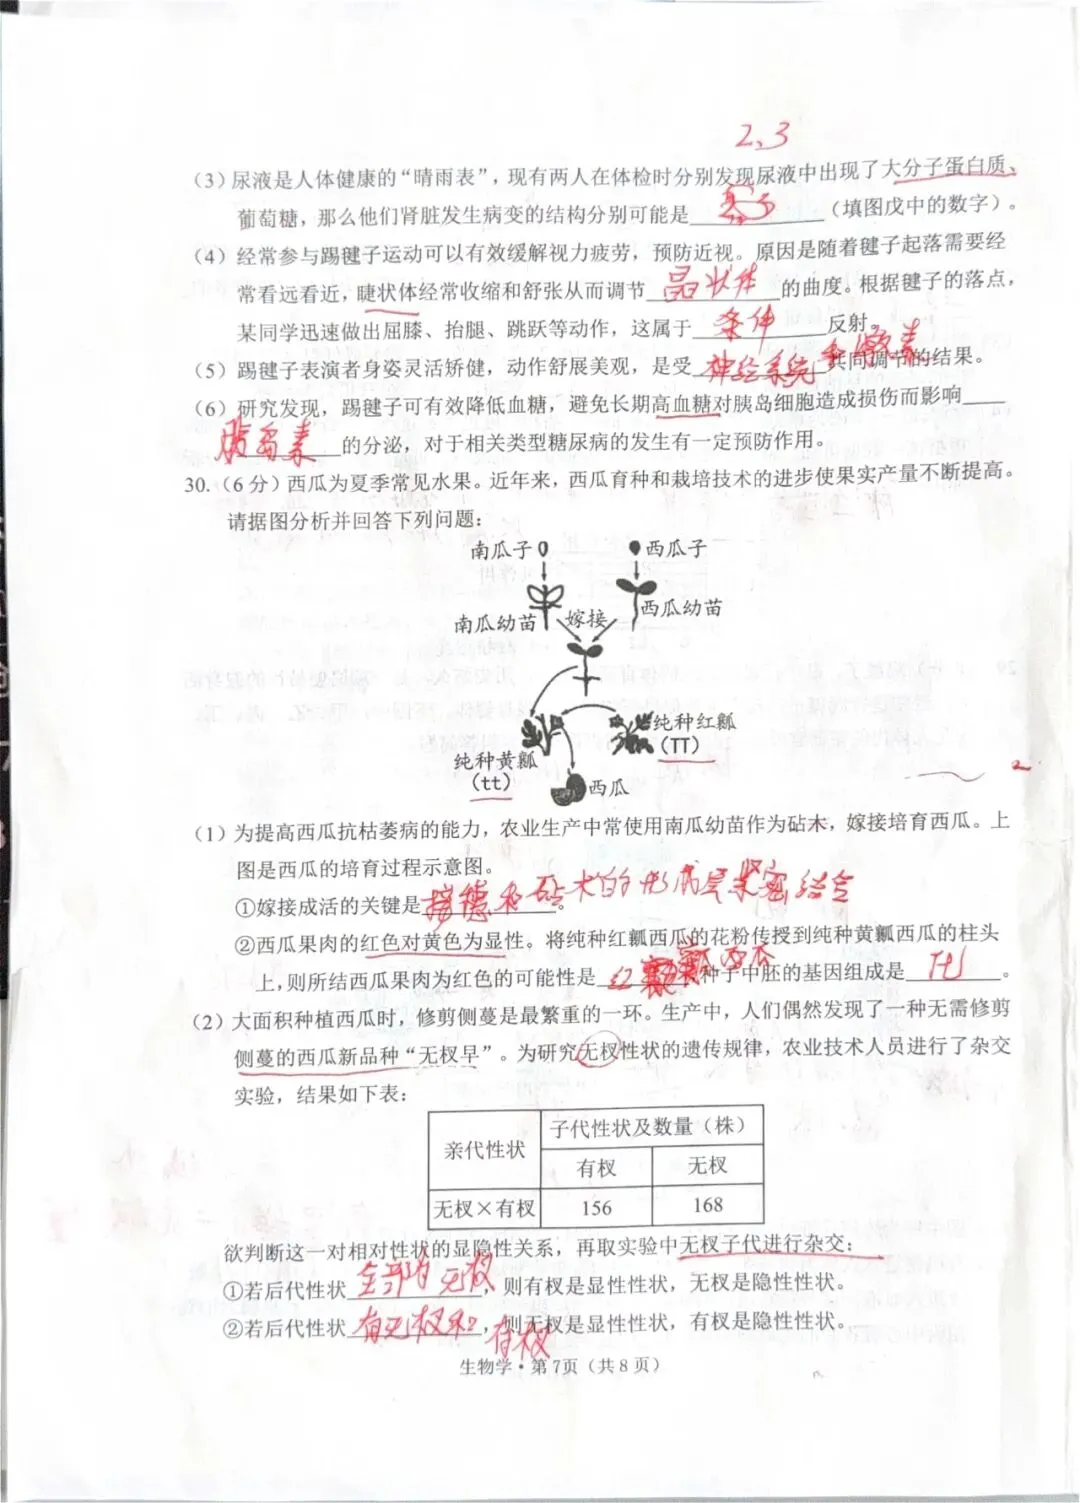 2、3
（3）尿液是人体健康的“晴雨表”，现有两人在体检时分别发现尿液中出现了大分子蛋白质、
葡萄糖，那么他们肾脏发生病变的结构分别可能是（填图戊中的数字）。
（4）经常参与踢毽子运动可以有效缓解视力疲劳，预防近视。原因是随着毽子起落需要经
常看远看近，睫状体经常收缩和舒张从而调节晶状体的曲度。根据毽子的落点，
某同学迅速做出屈膝、抬腿、跳跃等动作，这属于条件反射。
（5）踢毽子表演者身姿灵活矫健，动作舒展美观，是受神经系统和激素共同调节的结果。
（6）研究发现，踢毽子可有效降低血糖，避免长期高血糖对胰岛细胞造成损伤而影响
胰岛素的分泌，对于相关类型糖尿病的发生有一定预防作用。
30.（6分）西瓜为夏季常见水果。近年来，西瓜育种和栽培技术的进步使果实产量不断提高。
请据图分析并回答下列问题：
南瓜子 西瓜子
南瓜幼苗 嫁接 西瓜幼苗
纯种红瓤
（TT）
纯种黄瓤
（tt）
西瓜
（1）为提高西瓜抗枯萎病的能力，农业生产中常使用南瓜幼苗作为砧木，嫁接培育西瓜。上
图是西瓜的培育过程示意图。
①嫁接成活的关键是接穗和砧木的形成层紧密结合。
②西瓜果肉的红色对黄色为显性。将纯种红瓤西瓜的花粉传授到纯种黄瓤西瓜的柱头
上，则所结西瓜果肉为红色的可能性是种子中胚的基因组成是。
（2）大面积种植西瓜时，修剪侧蔓是最繁重的一环。生产中，人们偶然发现了一种无需修剪
侧蔓的西瓜新品种“无杈早”。为研究无杈性状的遗传规律，农业技术人员进行了杂交
实验，结果如下表：
亲代性状 子代性状及数量（株）
有杈 无杈
无杈×有杈 156 168
欲判断这一对相对性状的显隐性关系，再取实验中无杈子代进行杂交：
①若后代性状全部为无杈，则有杈是显性性状，无杈是隐性性状。
②若后代性状有无杈和有杈，则无杈是显性性状，有杈是隐性性状。
生物学·第7页（共8页）